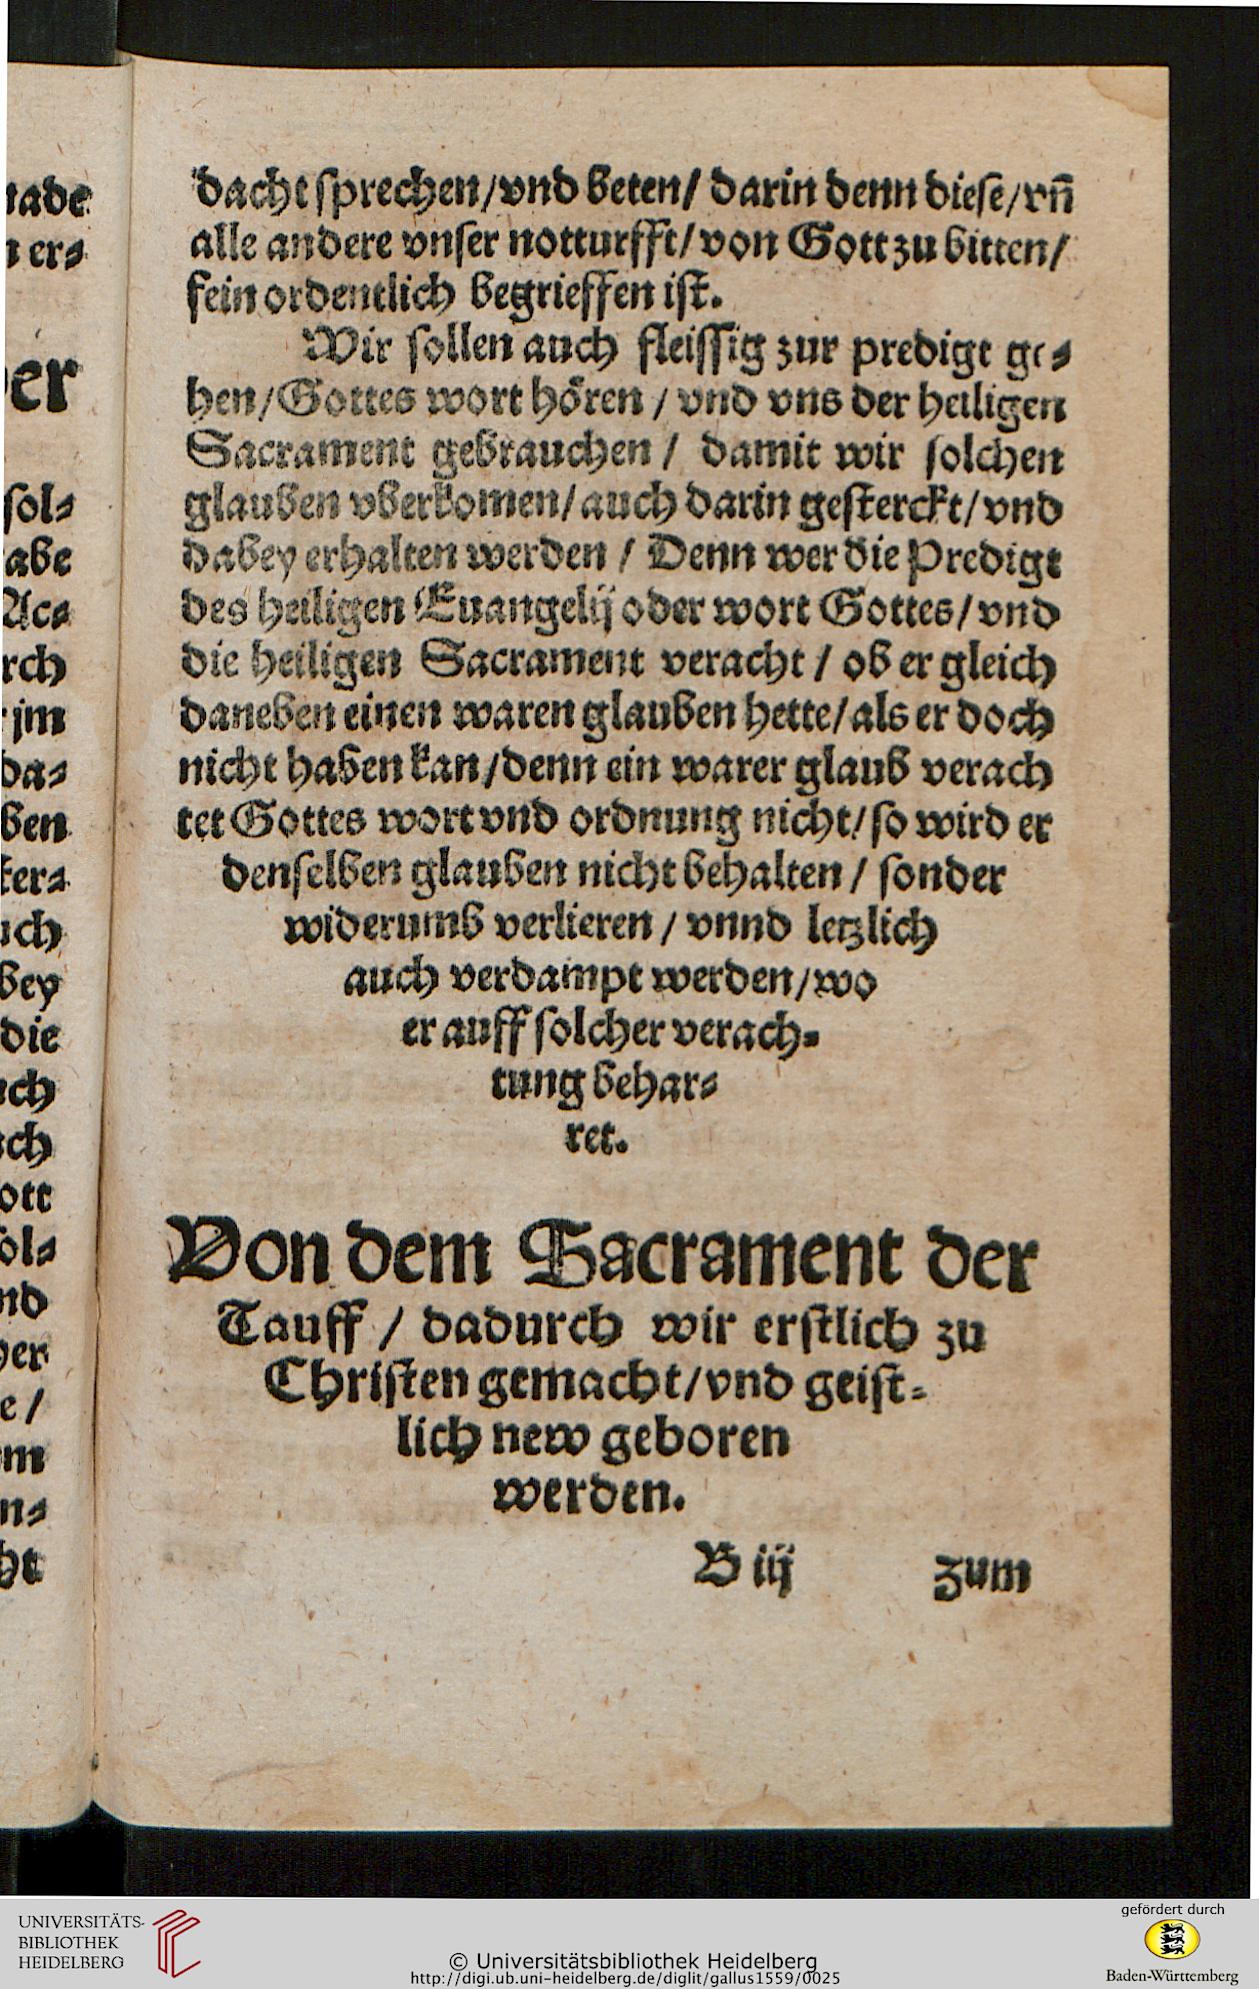 dacht sprechen/vnd beten/ darin denn diese/vñ
alle andere vnser notturfft/von Gott zu bitten/
fein ordentlich begrieffen ist.
Wir sollen auch fleissig zur predigt ge-
hen/Gottes wort hören / vnd vns der heiligen
Sacrament gebrauchen / damit wir solchen
glauben vberkomen/auch darin gesterckt/vnd
dabey erhalten werden / Denn wer die Predigt
des heiligen Euangelij oder wort Gottes/vnd
die heiligen Sacrament veracht / ob er gleich
daneben einen waren glauben hette/als er doch
nicht haben kan/denn ein warer glaub verach
tet Gottes wort vnd ordnung nicht/so wird er
denselben glauben nicht behalten / sonder
widerumb verlieren / vnnd letzlich
auch verdampt werden/wo
er auff solcher verach-
tung behar-
ret.
Von dem Sacrament der
Tauff / dadurch wir erstlich zu
Christen gemacht/vnd geist-
lich new geboren
werden.
B iij zum
UNIVERSITÄTS-
BIBLIOTHEK
HEIDELBERG
© Universitätsbibliothek Heidelberg
http://digi.ub.uni-heidelberg.de/diglit/gallus1559/0025
gefördert durch
Baden-Württemberg